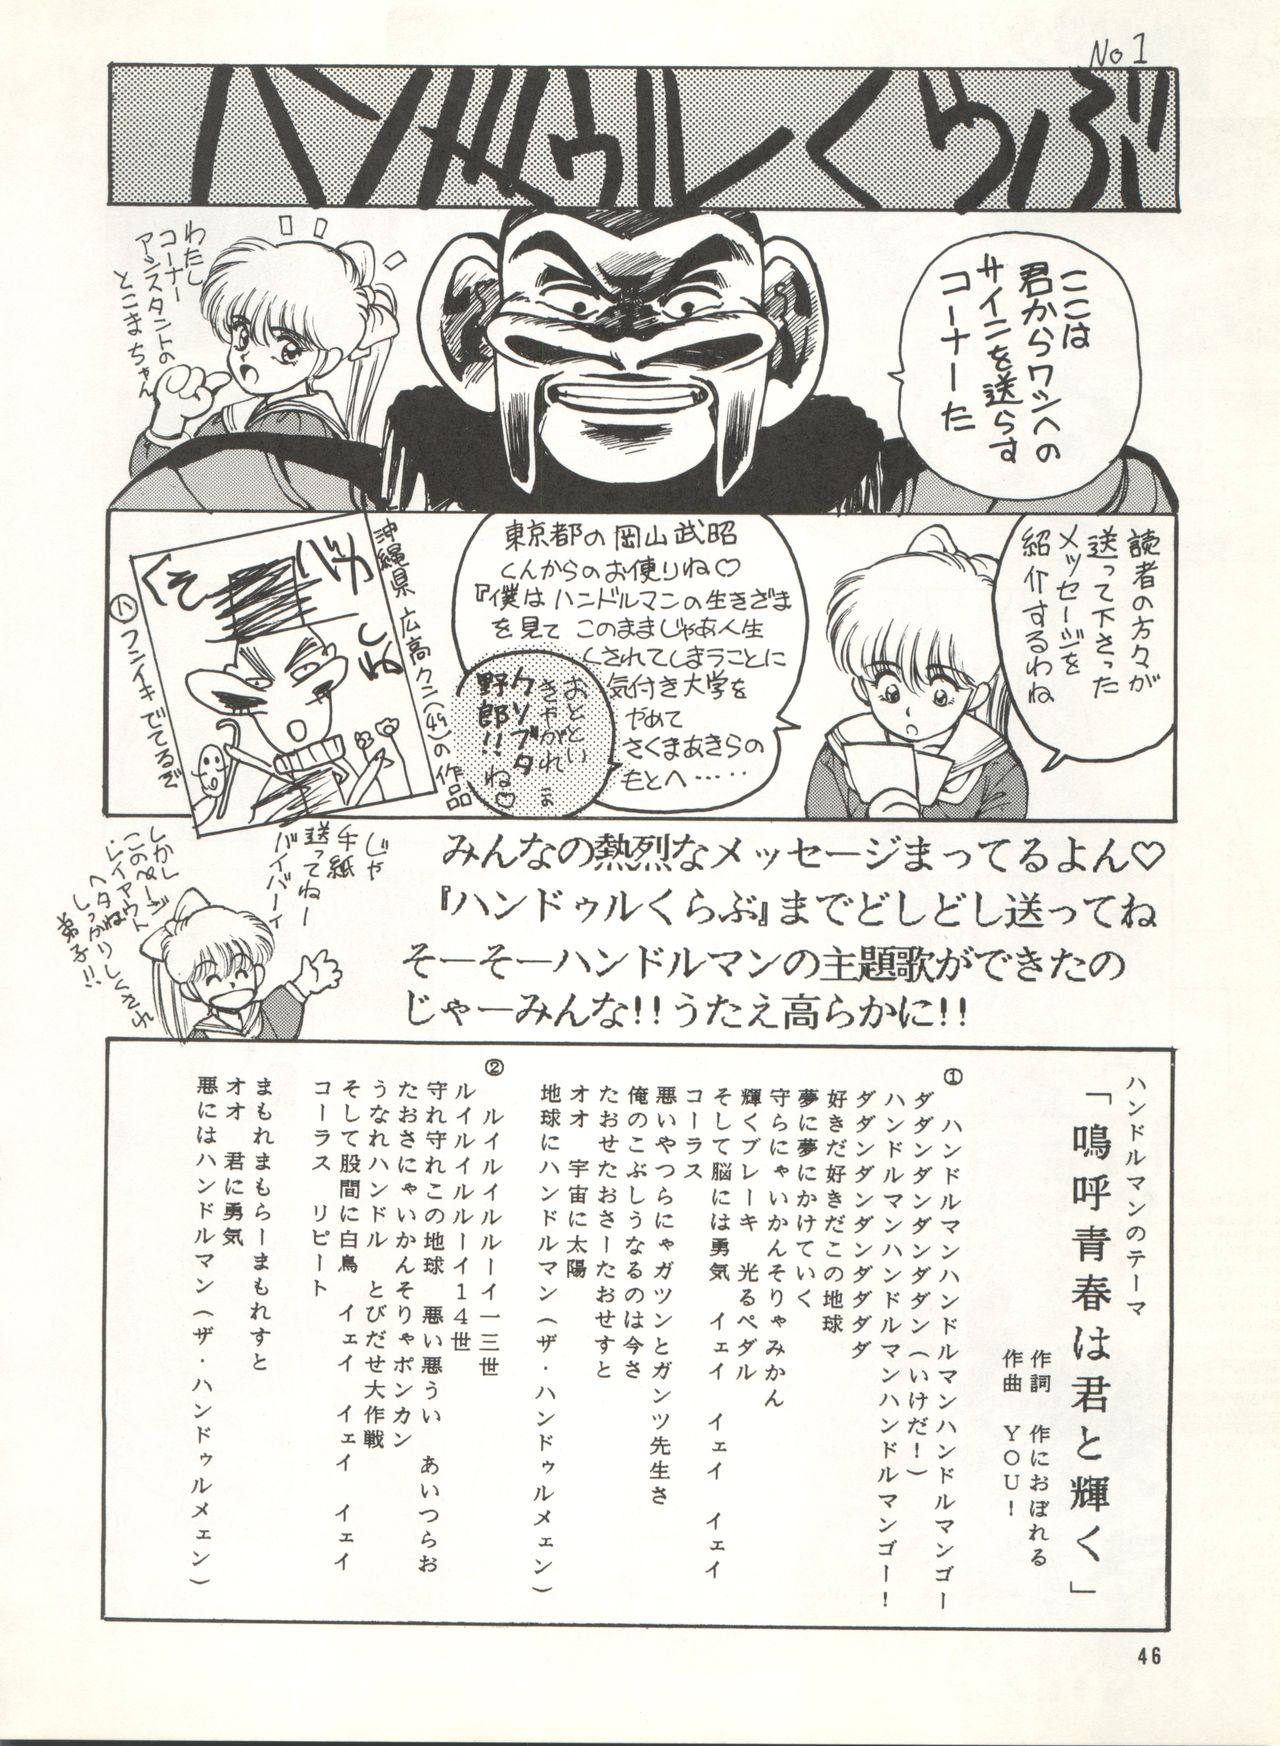 No1
ハンドゥルくらぶ
ここは
君からワシへの
サインを送らす
コーナーた
わたし
コーナー
アシスタントの
とこまちゃん
読者の方々が
送って下さった
メッセージを
紹介するわね
東京都の岡山武昭
くんからのお便りね♡
『僕はハンドルマンの生きざま
を見て このままじゃあ人生
くされてしまうことに
気付き大学を
やめて
さくまあきらの
もとへ・・・・・
おととい
きやがれ
クソブタ
野郎!!ね♡
沖縄県 広高クン(49)の作品
バカ
くそ
しね
フンイキでてるぞ
じゃ
手紙
送ってねー
バイバーイ
しかし
このページ
レイアウト
ヘタねェ
しっかりしくされ
弟子!!
みんなの熱烈なメッセージまってるよん♡
『ハンドゥルくらぶ』までどしどし送ってね
そーそーハンドルマンの主題歌ができたの
じゃーみんな!!うたえ高らかに!!
ハンドルマンのテーマ
「嗚呼青春は君と輝く」
作詞 作におぼれる
作曲 YOU!
① ハンドルマンハンドルマンハンドルマンゴー
ダダンダンダンダダン(いけだ!)
ハンドルマンハンドルマンハンドルマンゴー!
ダダンダンダンダダダダ
好きだ好きだこの地球
夢に夢にかけていく
守らにゃいかんそりゃみかん
輝くブレーキ 光るペダル
そして脳には勇気 イェイ イェイ イェイ
コーラス
悪いやつらにゃガツンとガンツ先生さ
俺のこぶしうなるのは今さ
たおせたおさーたおせすと
オオ 宇宙に太陽
地球にハンドルマン(ザ・ハンドゥルメェン)
② ルイルイルイルルーイ一三世
ルイルイルルーイ14世
守れ守れこの地球 悪い悪うい あいつらお
たおさにゃいかんそりゃポンカン
うなれハンドル とびだせ大作戦
そして股間に白鳥 イェイ イェイ イェイ
コーラス リピート
まもれまもらーまもれすと
オオ 君に勇気
悪にはハンドルマン(ザ・ハンドゥルメェン)
46